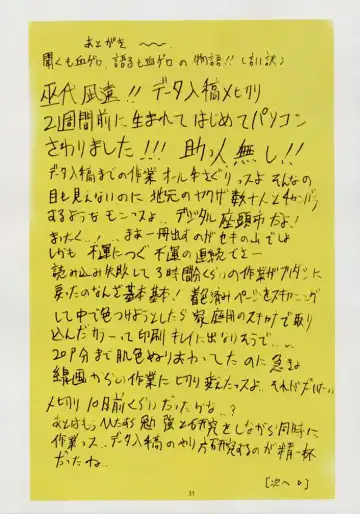 あとがき 〜〜.
聞くも血ゲロ、語るも血ゲロの物語!!(言い訳)
データ入稿〆切り
2週間前に生まれてはじめてパソコン
さわりました!!! 助っ人無し!!
データ入稿までの作業オール手さぐりっスよ そんなの
目も見えないのに地元のヤクザ数十人と4
するようなモンっスよ.. デジタル座頭市だよ!
まったく..! ... まぁ一冊出すのがセキの山でしょ
しかも不運につぐ不運の連続でさー
読み込み失敗して3時間分くらいの作業が
戻ったのなんざ基本基本! 着色済みページをスキャニング
して中で色つけようとしたら家庭用のスキャナで取り
込んだカラーって印刷キレイに出なりそうで...
20P分まで肌色ぬりおわってたのに急きょ
線画からの作業に切り変えたっスよ.. それがだいたい
〆切り10日前くらいだったかな..?
あとはもうひたすら勉強と研究をしながら同時に
作業っス.. データ入稿のやり方研究するのが精一杯
だったね..
[次へ]
31